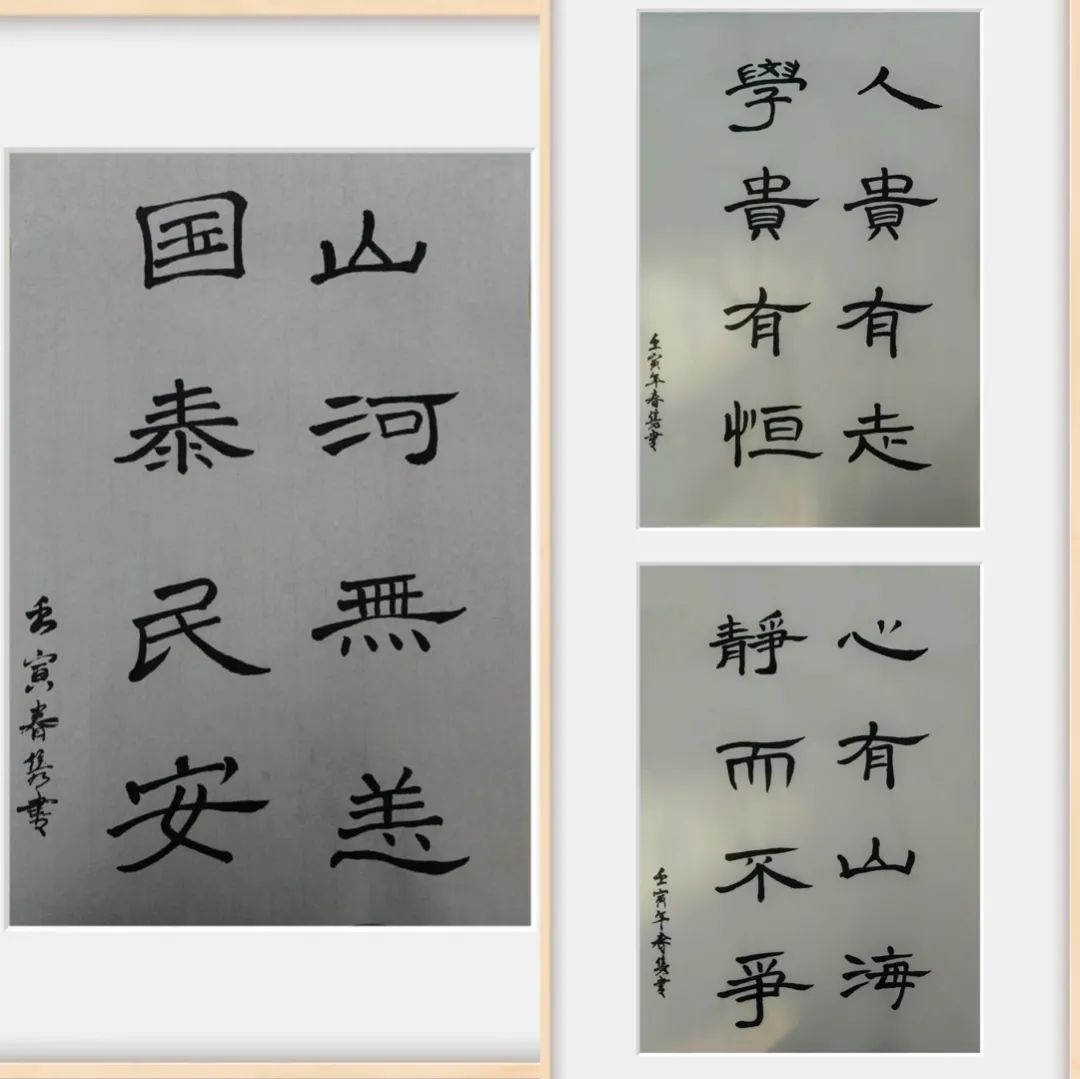 山河無恙
国泰民安
壬寅春書
人貴有志
學貴有恒
壬寅年春書
心有山海
靜而不爭
壬寅年春書